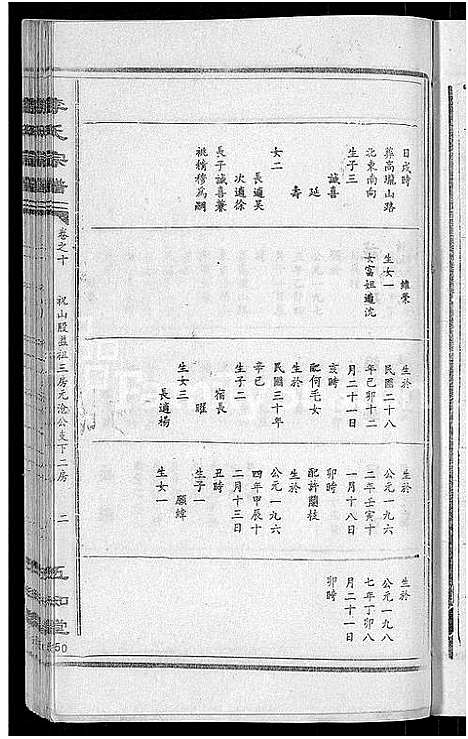 李氏宗譜
卷之十
祝山股盛祖三房元滄公支下二房
二
五知堂
150
日戌時
葬高壠山路
北東南向
生子三
誠喜
延
壽
女二
長適吴
次適徐
長子誠喜兼
祧橫穆為嗣
維榮
生女一
女富妲適沈
生於
民國二十八
年己卯十二
月二十一日
亥時
配何毛女
生於
民國三十年
辛巳
生子二
宿長
曜
生女三
長適楊
生於
公元一九六
二年壬寅十
一月十八日
卯時
配許蘭枝
生於
公元一九六
四年甲辰十
二月十三日
丑時
生子一
願緯
生女一
生於
公元一九八
七年丁卯八
月二十一日
卯時